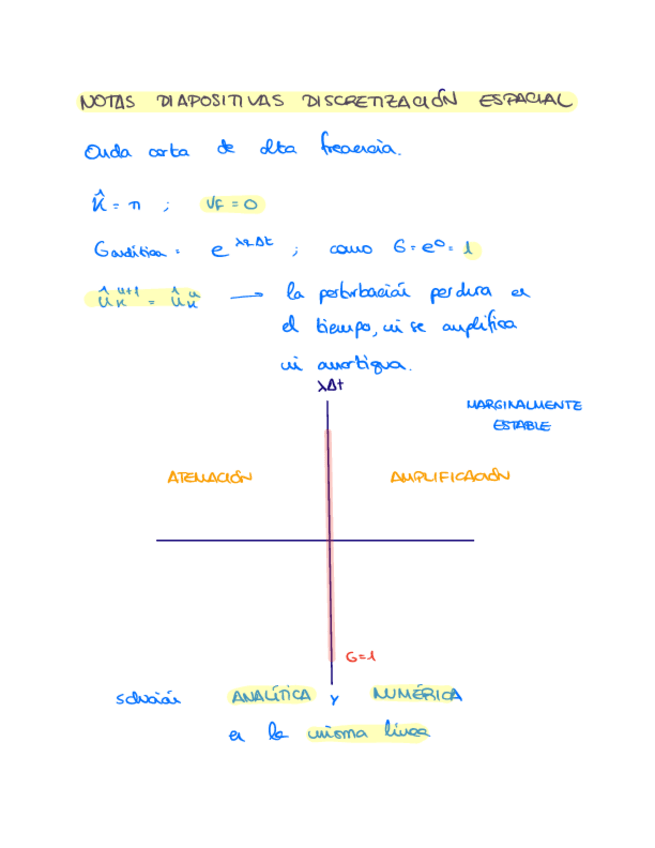 NOTAS DIAPOSITIVAS DISCRETIZACIÓN ESPACIAL
Onda corta de alta frecuencia.
k̂ = π ; VF = 0
Ganalítica = e^λαΔt ; como G = e⁰ = 1
û_k^n+1 = û_k^n → la perturbación perdura en
el tiempo, ni se amplifica
ni amortigua.
λΔt
MARGINALMENTE
ESTABLE
ATENUACIÓN AMPLIFICACIÓN
G=1
solución ANALÍTICA Y NUMÉRICA
en la misma línea